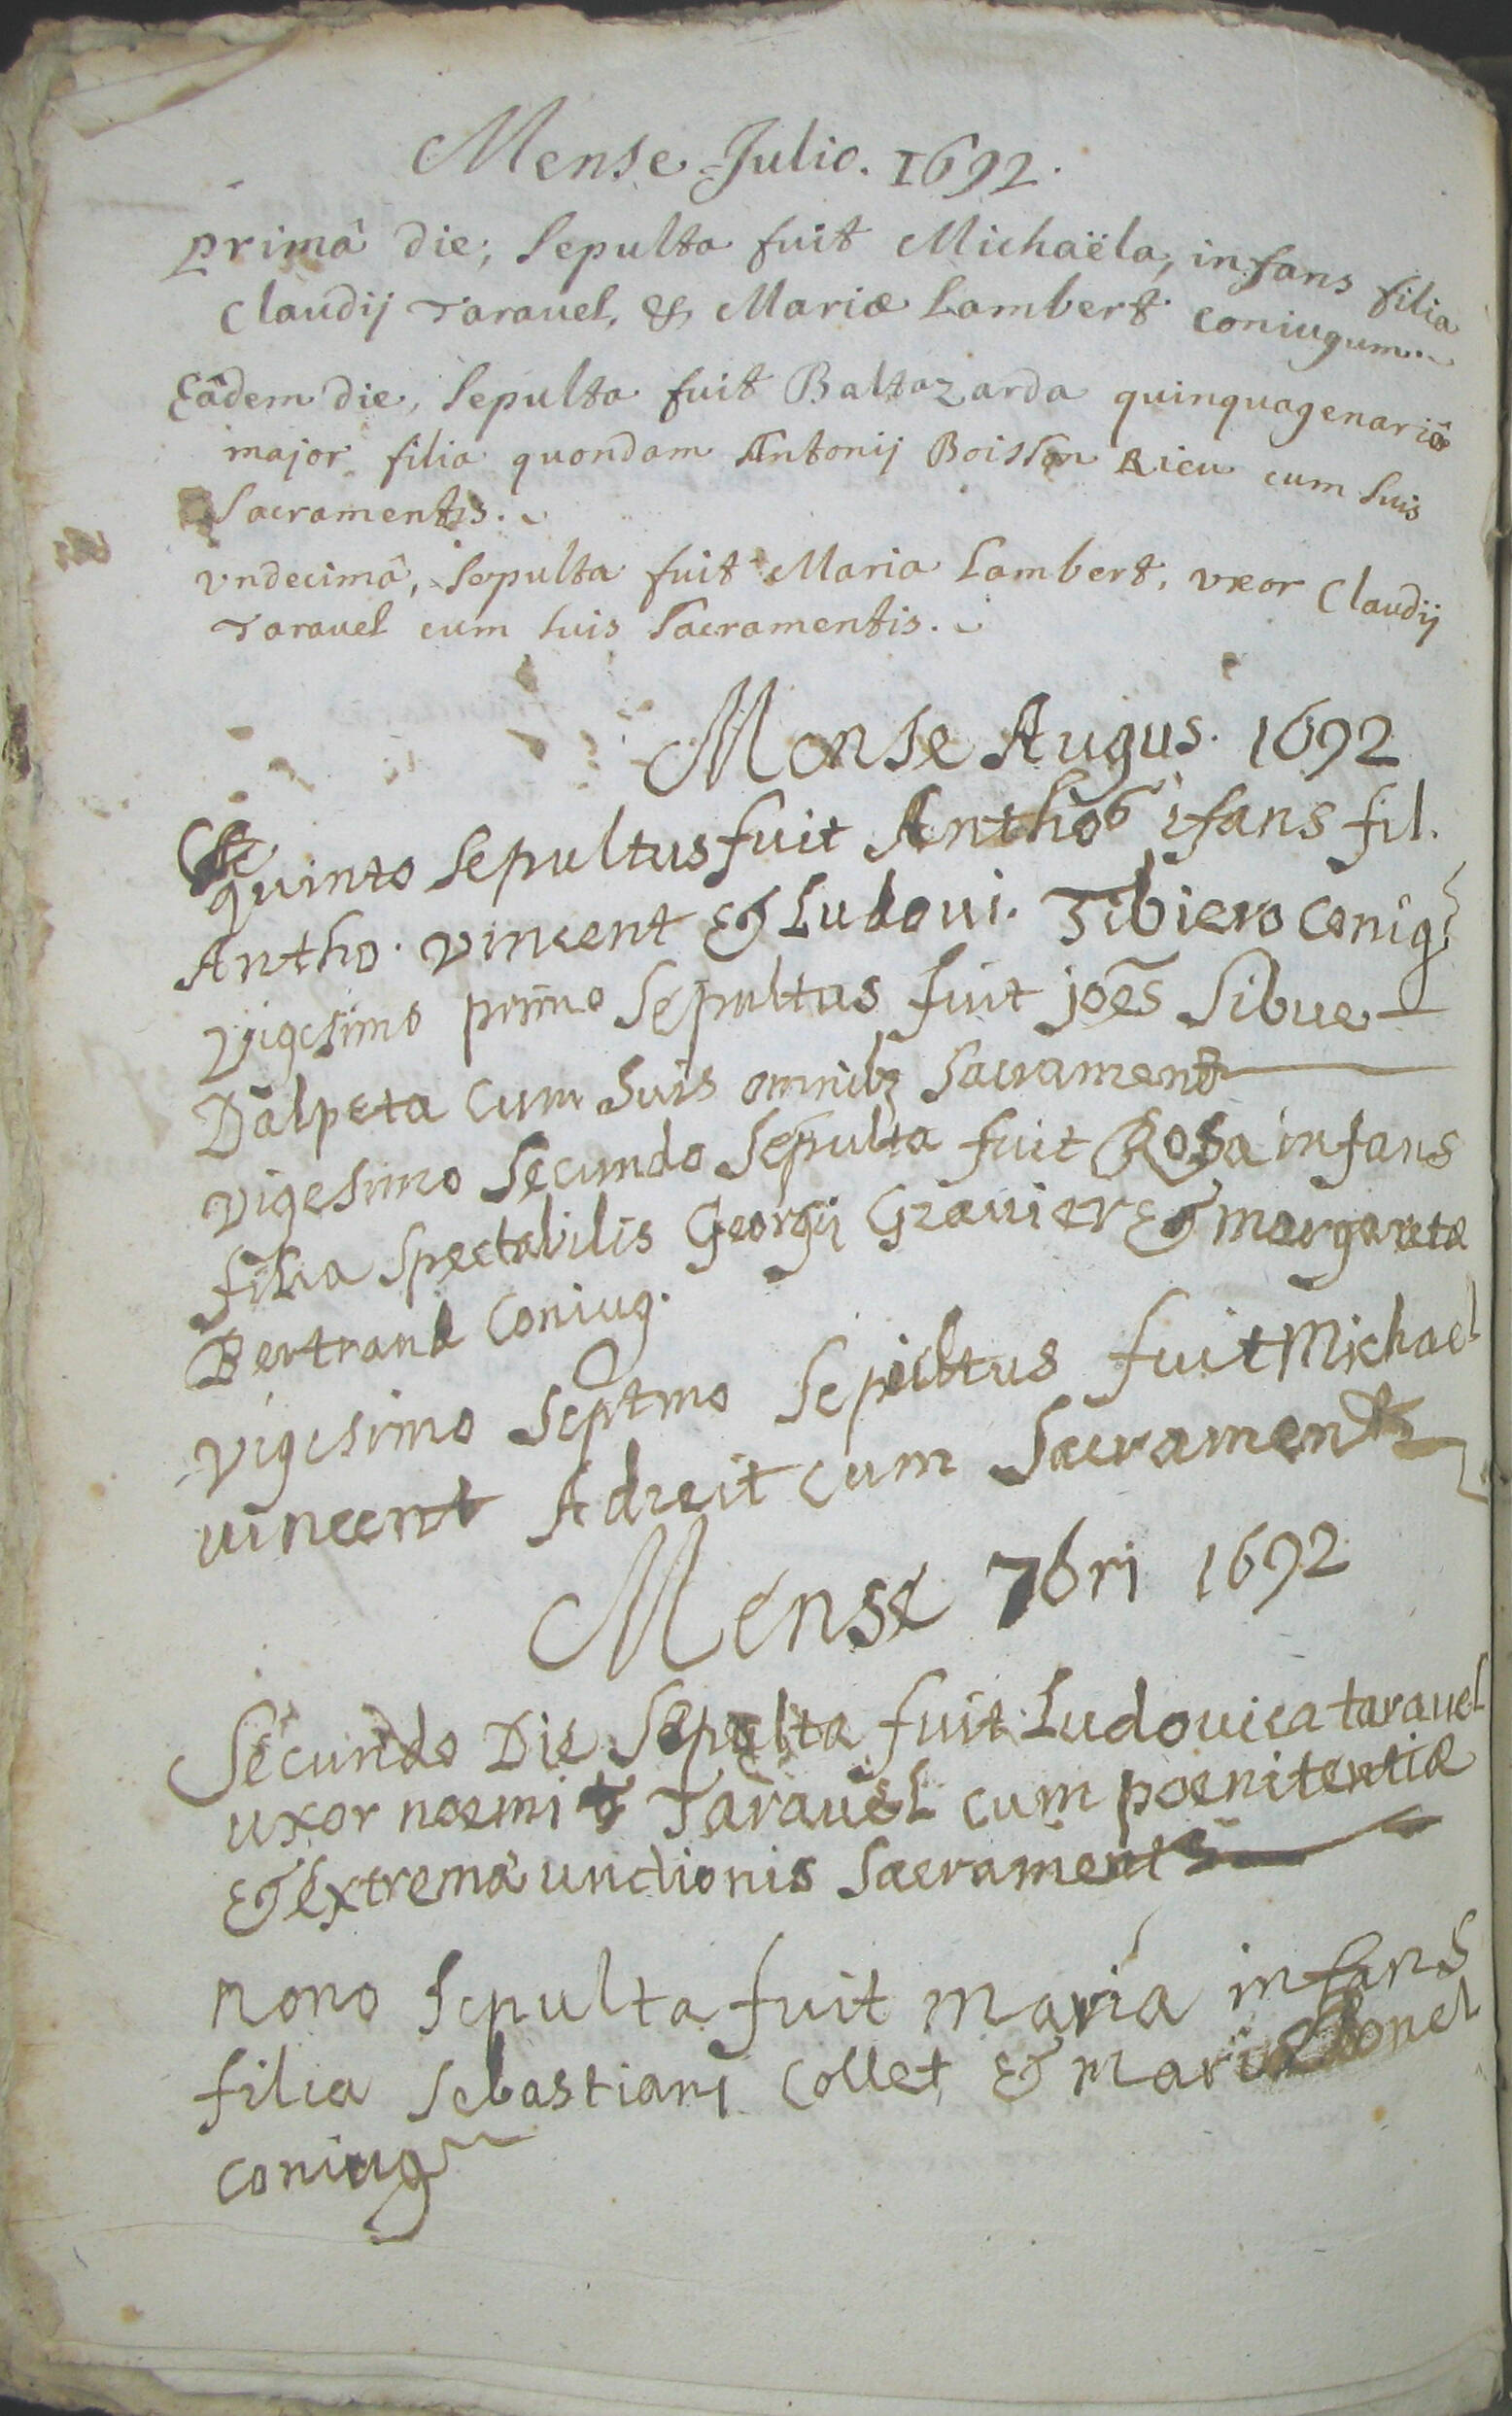 Mense Julio. 1692.
primâ die; Sepulta fuit Michaëla, infans filia
Claudij Tarauel, & Mariæ Lambert coniugum.
Eâdem die, Sepulta fuit Baltazarda quinquagenariâ
major filia quondam Antonij Boisson Rieu cum suis
Sacramentis.
vndecimâ, Sepulta fuit Maria Lambert, vxor Claudij
Tarauel cum suis Sacramentis.
Mense Augus. 1692
quinto Sepultus fuit Antho⁹ ifans fil.
Antho. vincent & Ludoui. Tibiero Coniug.
vigesimo primo Sepultus fuit joēs Sibue
Dalpeta Cum Suis omnibꝫ Sacrament
vigesimo Secundo Sepulta fuit Rosa infans
filia Spectabilis Georgij Grauier & margareta
Bertrand Coniug.
vigesimo Septmo Sepultus fuit Michael
vincent Adreit cum Sacramentis
Mense 7bri 1692
Secundo Die Sepulta fuit Ludouica tarauel
uxor noemi Tarauel cum poenitentiæ
& Extrema unctionis Sacraments
nono Sepulta fuit maria infans
filia Sebastiani Collet & mariæ
coniug